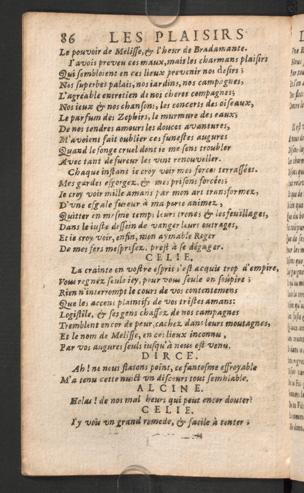 86 LES PLAISIRS
Le pouvoir de Melisse, & l'heur de Bradamante.
I'avois preveu ces maux, mais les charmans plaisirs
Qui sembloient en ces lieux prevenir nos desirs;
Nos superbes palais, nos iardins, nos campagnes,
L'agreable entretien de nos cheres compagnes;
Nos ieux & nos chansons, les concerts des oiseaux,
Le parfum des Zephirs, le murmure des eaux;
De nos tendres amours les douces avantures,
M'avoient fait oublier ces funestes augures
Quand le songe cruel dont ie me sens troubler
Avec tant de fureur les vint renouveller.
Chaque instant ie croy voir mes forces terrassées,
Mes gardes esgorgez, & mes prisons forcées;
Ie croy voir mille amans par mon art transformez,
D'une esgale fureur à ma perte animez,
Quitter en mesme temps leurs troncs & les fueillages,
Dans le iuste dessein de vanger leurs outrages,
Et ie croy voir, enfin, mon aymable Roger
De mes fers mesprisez, prest à se dégager.
CELIE.
La crainte en vostre esprit s'est acquis trop d'empire,
Vous regnez seule icy, pour vous seule on soûpire;
Rien n'interrompt le cours de vos contentemens
Que les accens plaintifs de vos tristes amans:
Logistile, & ses gens chassez de nos campagnes
Tremblent encor de peur, cachez dans leurs montagnes,
Et le nom de Melisse, en ces lieux inconnu,
Par vos augures seuls iusqu'à nous est venu.
DIRCE.
Ah! ne nous flatons point, ce fantosme effroyable
M'a tenu cette nuict un discours tout semblable.
ALCINE.
Helas! de nos malheurs qui peut encor douter?
CELIE.
I'y voy un grand remede, & facile à tenter;